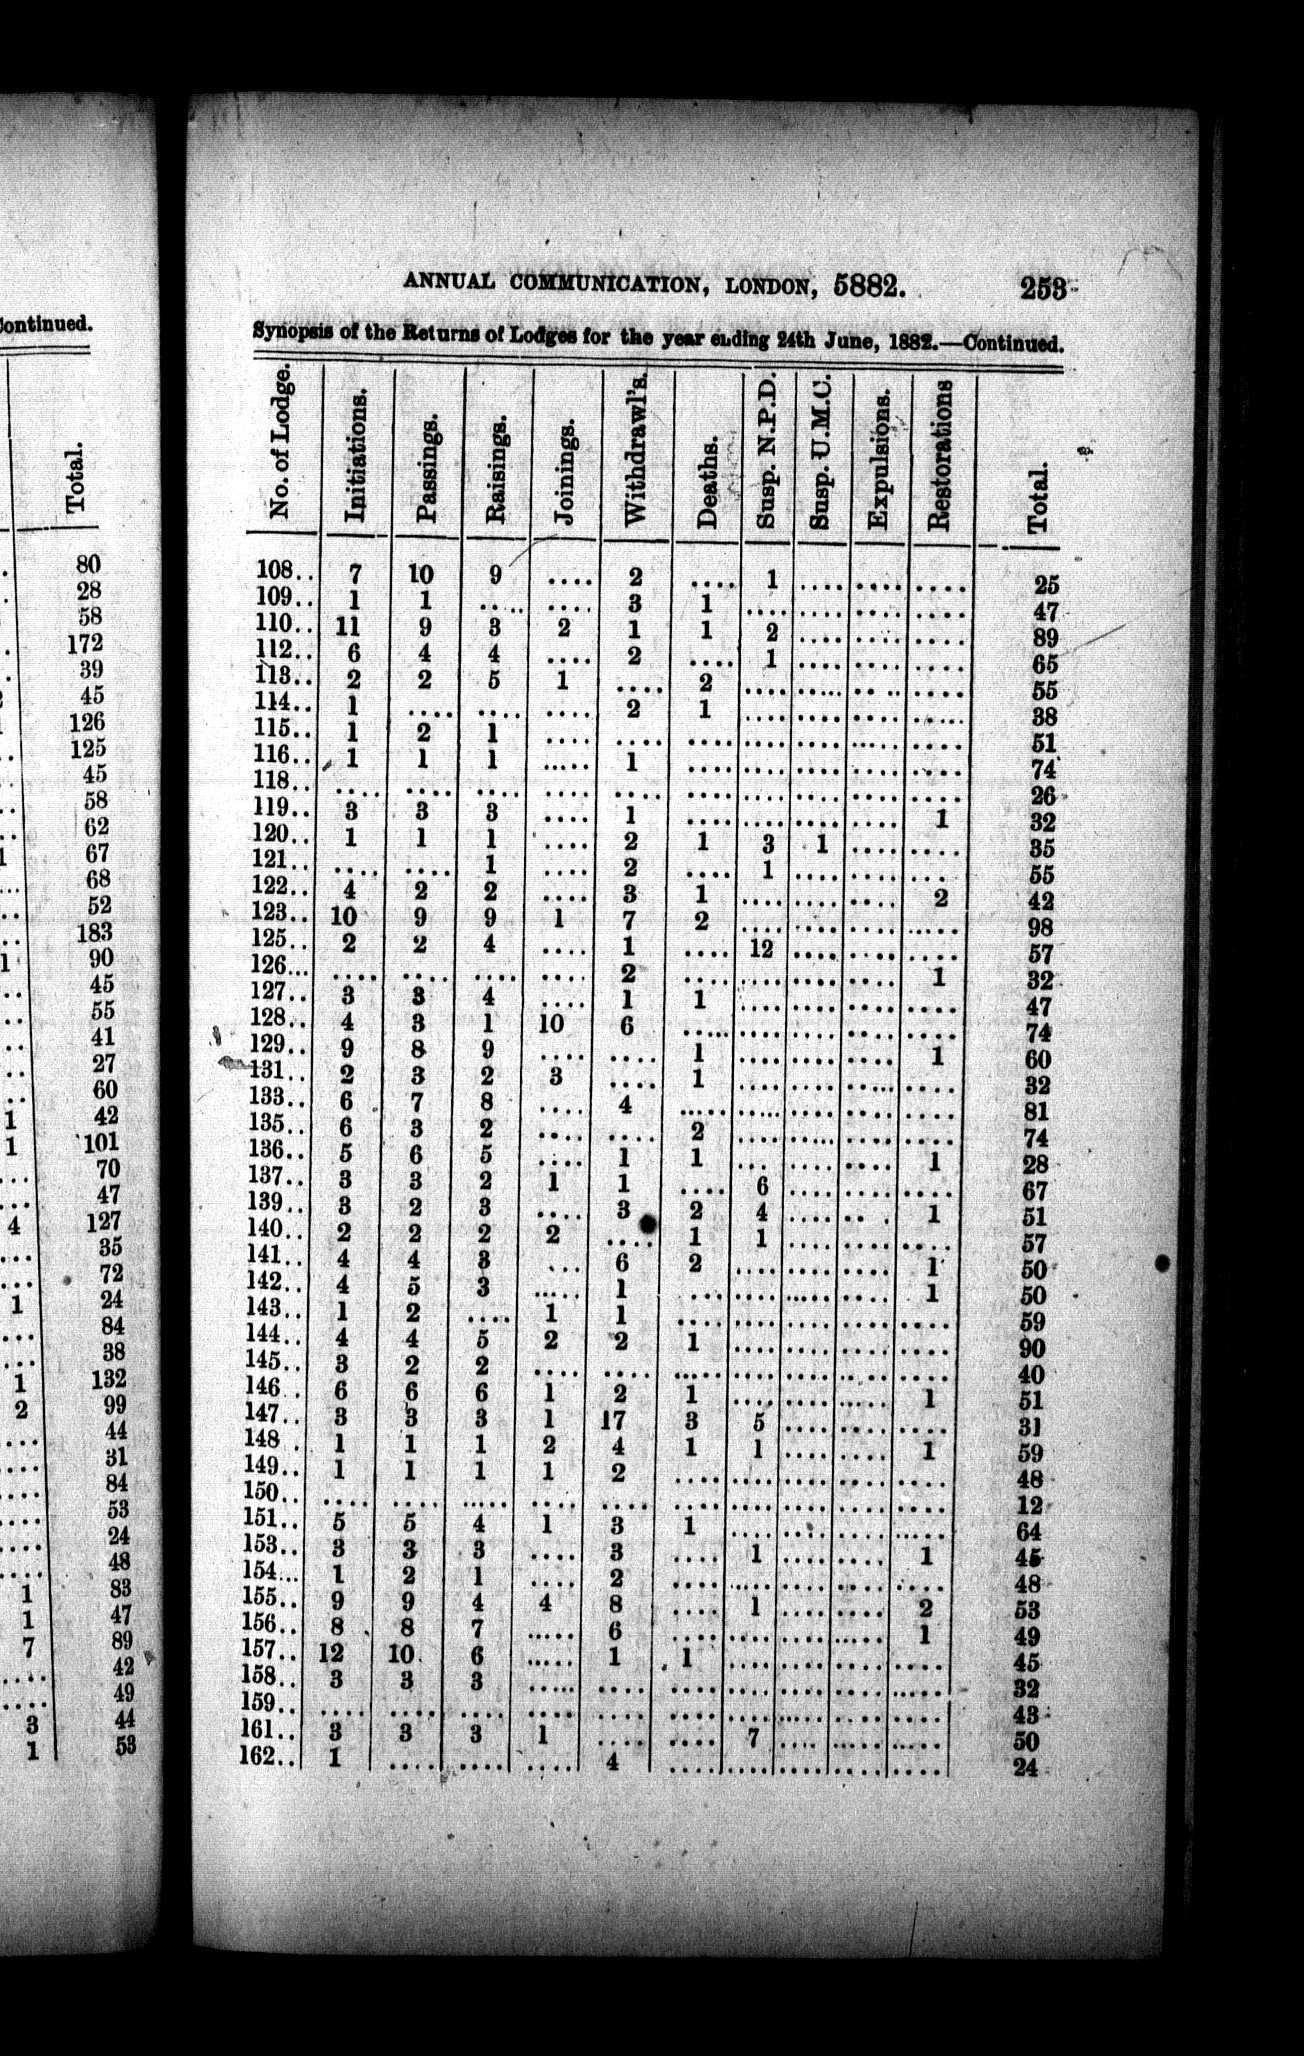 Continued.
Total.
80
28
58
172
39
45
126
125
45
58
62
1 67
68
52
183
1 90
45
55
41
27
60
1 42
1 101
70
47
4 127
35
72
1 24
84
38
1 132
2 99
44
31
84
53
24
48
1 83
1 47
7 89
42
49
3 44
1 53
ANNUAL COMMUNICATION, LONDON, 5882. 253
Synopsis of the Returns of Lodges for the year ending 24th June, 1882.—Continued.
No. of Lodge. Initiations. Passings. Raisings. Joinings. Withdrawl's. Deaths. Susp. N.P.D. Susp. U.M.C. Expulsions. Restorations Total.
108.. 7 10 9 .... 2 .... 1 .... .... .... 25
109.. 1 1 .... .... 3 1 .... .... .... .... 47
110.. 11 9 3 2 1 1 2 .... .... .... 89
112.. 6 4 4 .... 2 .... 1 .... .... .... 65
113.. 2 2 5 1 .... 2 .... .... .... .... 55
114.. 1 .... .... .... 2 1 .... .... .... .... 38
115.. 1 2 1 .... .... .... .... .... .... .... 51
116.. 1 1 1 .... 1 .... .... .... .... .... 74
118.. .... .... .... .... .... .... .... .... .... .... 26
119.. 3 3 3 .... 1 .... .... .... .... 1 32
120.. 1 1 1 .... 2 1 3 1 .... .... 35
121.. .... .... 1 .... 2 .... 1 .... .... .... 55
122.. 4 2 2 .... 3 1 .... .... .... 2 42
123.. 10 9 9 1 7 2 .... .... .... .... 98
125.. 2 2 4 .... 1 .... 12 .... .... .... 57
126... .... .... .... .... 2 .... .... .... .... 1 32
127.. 3 3 4 .... 1 1 .... .... .... .... 47
128.. 4 3 1 10 6 .... .... .... .... .... 74
129.. 9 8 9 .... .... 1 .... .... .... 1 60
131.. 2 3 2 3 .... 1 .... .... .... .... 32
133.. 6 7 8 .... 4 .... .... .... .... .... 81
135.. 6 3 2 .... .... 2 .... .... .... .... 74
136.. 5 6 5 .... 1 1 ... .... .... 1 28
137.. 3 3 2 1 1 .... 6 .... .... .... 67
139.. 3 2 3 .... 3 2 4 .... .... 1 51
140.. 2 2 2 2 .... 1 1 .... .... .... 57
141.. 4 4 3 ... 6 2 .... .... .... 1 50
142.. 4 5 3 .... 1 .... .... .... .... 1 50
143.. 1 2 .... 1 1 .... .... .... .... .... 59
144.. 4 4 5 2 2 1 .... .... .... .... 90
145.. 3 2 2 .... .... .... .... .... .... .... 40
146 . 6 6 6 1 2 1 .... .... .... 1 51
147.. 3 3 3 1 17 3 5 .... .... .... 31
148 . 1 1 1 2 4 1 1 .... .... 1 59
149.. 1 1 1 1 2 .... .... .... .... .... 48
150.. .... .... .... .... .... .... .... .... .... .... 12
151.. 5 5 4 1 3 1 .... .... .... .... 64
153.. 3 3 3 .... 3 .... 1 .... .... 1 45
154... 1 2 1 .... 2 .... .... .... .... .... 48
155.. 9 9 4 4 8 .... 1 .... .... 2 53
156.. 8 8 7 .... 6 .... .... .... .... 1 49
157.. 12 10 6 .... 1 1 .... .... .... .... 45
158.. 3 3 3 .... .... .... .... .... .... .... 32
159.. .... .... .... .... .... .... .... .... .... .... 43
161.. 3 3 3 1 .... .... 7 .... .... .... 50
162.. 1 .... .... .... 4 .... .... .... .... .... 24